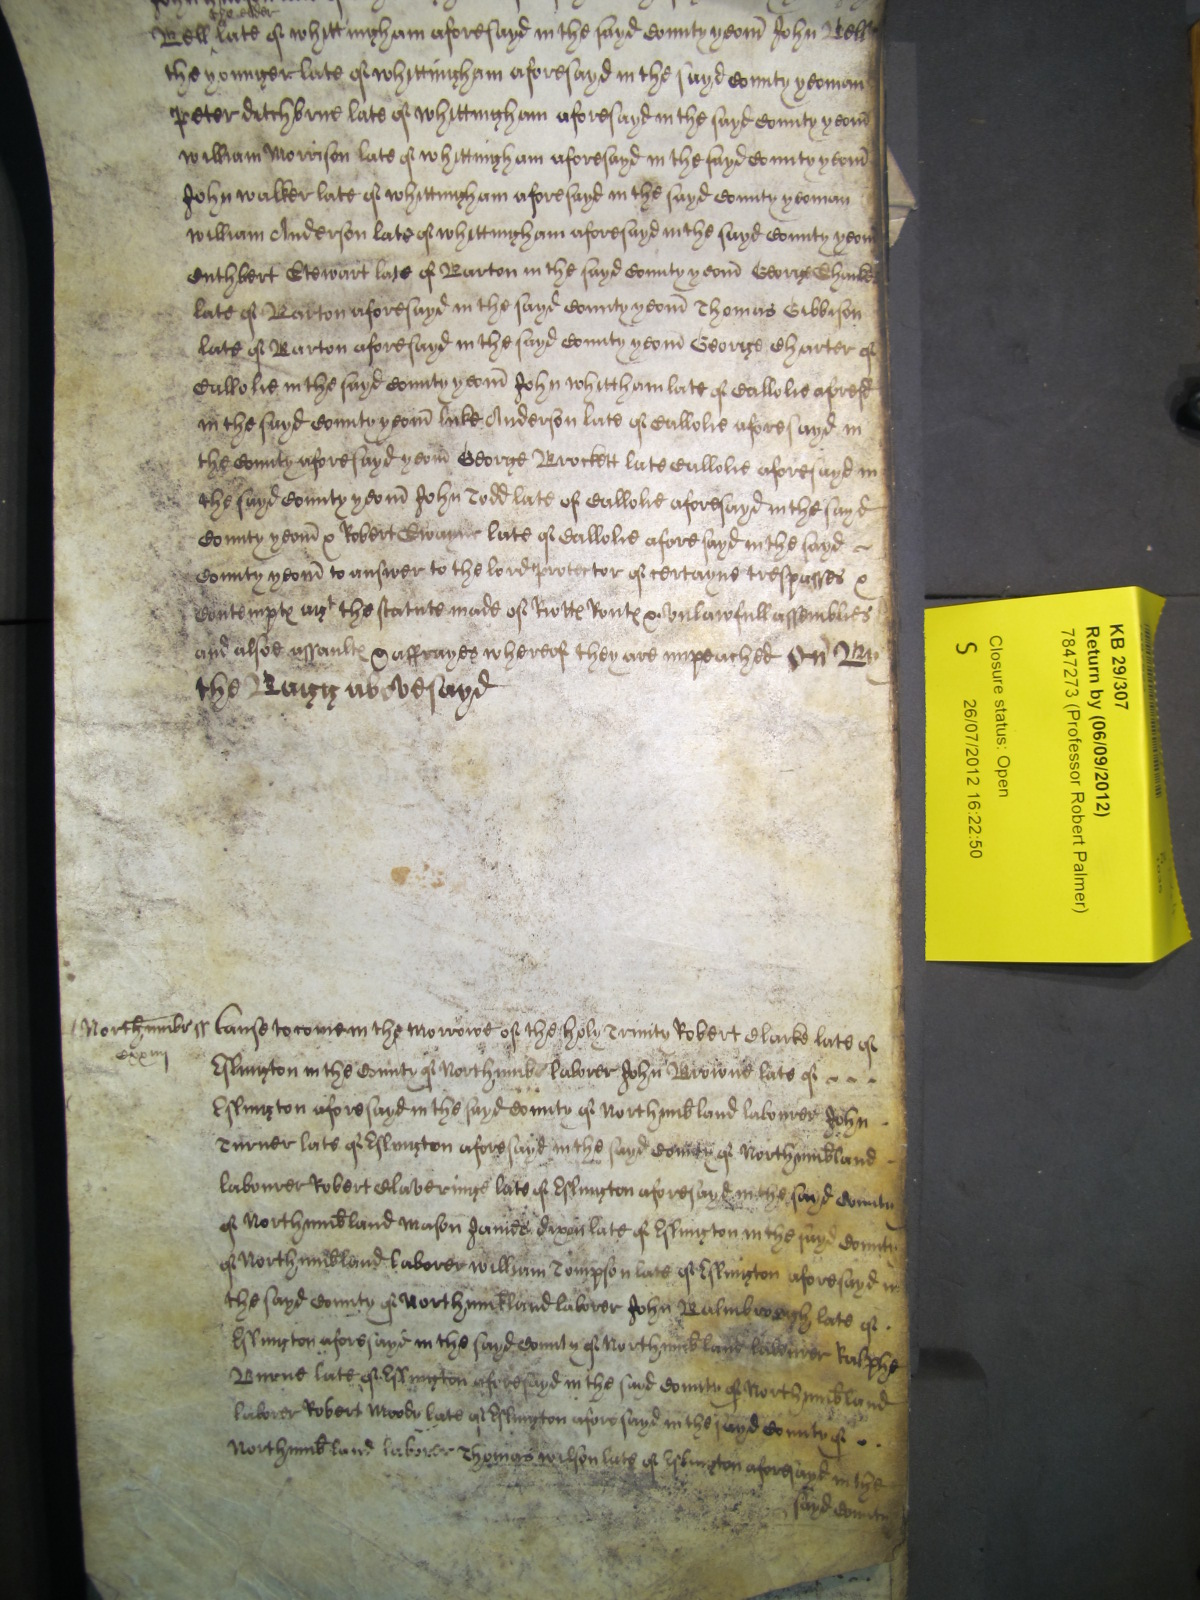 the elder
Bell late of Whittingham aforesayd in the sayd County yeom̄ John Bell
the younger late of Whittingham aforesayd in the sayd County yeoman
Peter ditchbrne late of Whittingham aforesayd in the sayd County yeom̄
William Morrison late of Whittingham aforesayd in the sayd County yeom̄
John Walker late of Whittingham aforesayd in the sayd County yeoman
William Anderson late of Whittingham aforesayd in the sayd County yeom̄
Cuthbert Stewart late of Barton in the sayd County yeom̄ George
late of Barton aforesayd in the sayd County yeom̄ Thomas Gibbison
late of Barton aforesayd in the sayd County yeom̄ George Charter of
Callolie in the sayd County yeom̄ John Whittham late of Callolie aforesd
in the sayd County yeom̄ Luke Anderson late of Callolie aforesayd in
the County aforesayd yeom̄ George Brockett late Callolie aforesayd in
the sayd County yeom̄ John Todd late of Callolie aforesayd in the sayd
County yeom̄ & Robert late of Callolie aforesayd in the sayd
County yeom̄ to answer to the lord Protector of certayne trespasses &
Contempte agt the statute made of Riotte Route & unlawfull assemblies
and alsoe assaulte & affrayes whereof they are impeached By
the Bagg abovesayd
Northumbr ss Cause to come in the Morrowe of the holy Trinity Robert Clarke late of
Eslington in the County of Northumb laborer John Browne late of
Eslington aforesayd in the sayd County of Northumb̄land labourer John
Turner late of Eslington aforesayd in the sayd County of Northumb̄land
labourer Robert Claveringe late of Eslington aforesayd in the sayd County
of Northumb̄land Mason James dixon late of Eslington in the sayd County
of Northumb̄land laborer William Tompson late of Eslington aforesayd in
the sayd County of Northumb̄land laborer John Balmbrough late of
Eslington aforesayd in the sayd County of Northumb̄land labourer Ralphe
Burne late of Eslington aforesayd in the said County of Northumb̄land
laborer Robert Moody late of Eslington aforesayd in the sayd County of
Northumb̄land laborer Thomas Wilson late of Eslington aforesayd in the
sayd County
KB 29/307
Return by (06/09/2012)
7847273 (Professor Robert Palmer)
Closure status: Open
S 26/07/2012 16:22:50